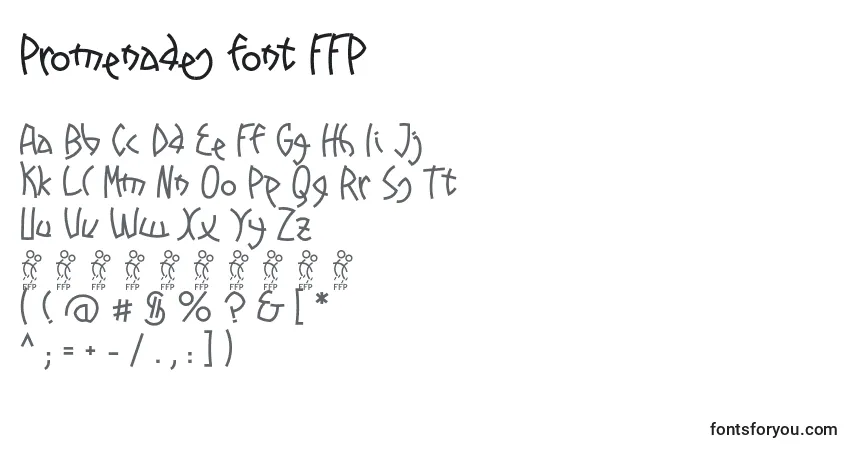 Promenades font FFP
Aa Bb Cc Dd Ee Ff Gg Hh Ii Jj
Kk Ll Mm Nn Oo Pp Qq Rr Ss Tt
Uu Vv Ww Xx Yy Zz
FFP FFP FFP FFP FFP FFP FFP FFP FFP FFP
( { @ # $ % ? & [ *
^ ; = + - / . , : ] )
fontsforyou.com